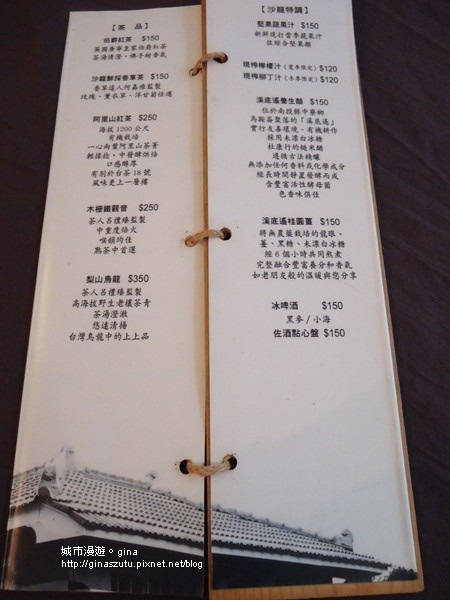 【茶 品】
伯爵紅茶 $150
英國唐寧皇家伯爵紅茶
茶湯清澄、佛手柑香氣
沙龍鮮採香草茶 $150
香草達人何嘉雅監製
玫瑰、薰衣草、洋甘菊任選
阿里山紅茶 $250
海拔1200公尺
有機栽培
一心兩葉阿里山茶菁
輕揉捻、中發酵烘焙
口感醇厚
有別於台茶18號
風味更上一層樓
木柵鐵觀音 $250
茶人呂禮臻監製
中重度焙火
喉韻均佳
熟茶中首選
梨山烏龍 $350
茶人呂禮臻監製
高海拔野生老欉茶青
茶湯澄澈
悠遠清揚
台灣烏龍中的上上品
【沙龍特調】
堅果蔬果汁 $150
新鮮現打當季蔬果汁
佐綜合堅果類
現榨檸檬汁 (夏季限定) $120
現榨柳丁汁 (冬季限定) $120
溪底遙養生醋 $150
位於南投縣中寮鄉
馬鞍崙聚落的「溪底遙」
實行友善環境、有機耕作
採用未漂白冰糖
杜康行的糙米醋
遵循古法精釀
無添加任何香料或化學成分
經長時間發置發酵而成
含豐富活性酵母菌
色香味俱佳
溪底遙桂圓薑 $150
將無農藥栽培的龍眼、
薑、黑糖、未漂白冰糖
經6個小時共同熬煮
完整融合豐富養分和香氣
如老朋友般的溫暖與您分享
冰啤酒 $150
黑麥/小海
佐酒點心盤 $150
城市漫遊。gina
http://ginaszutu.pixnet.net/blog